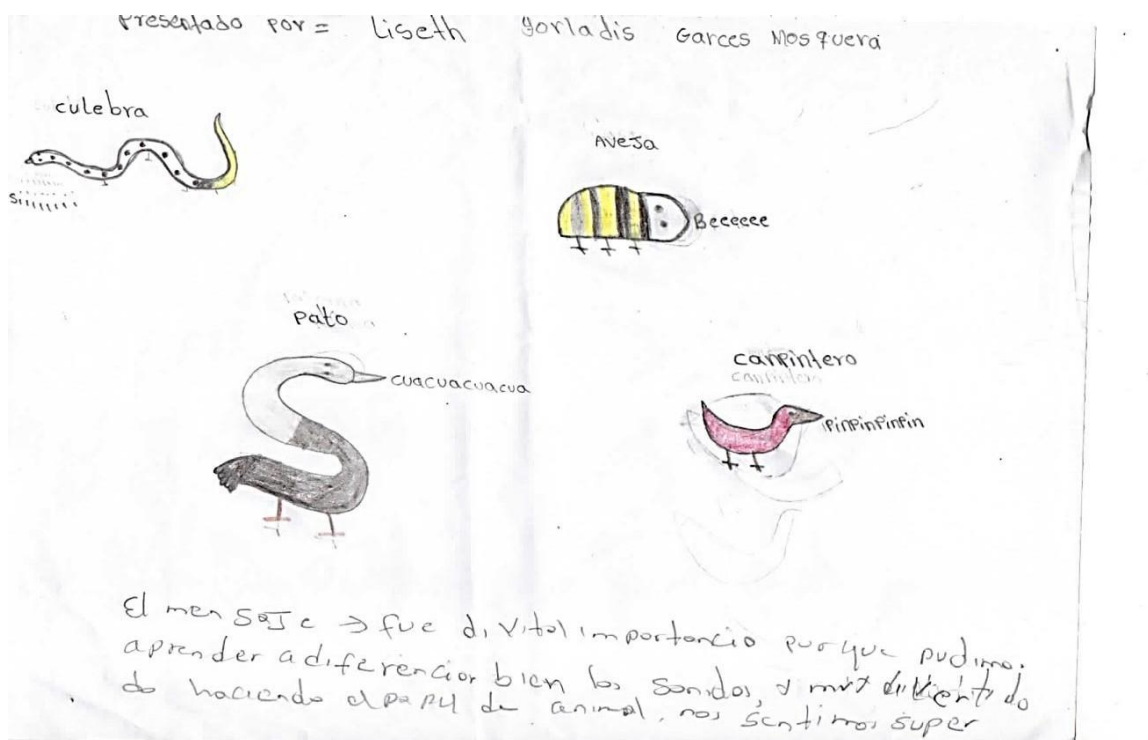 Presentado por = Liseth Yorladis Garces Mosquera
culebra
Aveja
Siiiiiii
Beeeeee
pato
cuacuacuacua
canpintero
canpintero
pinpinpinpin
El mensaje → fue di vital importancia porque pudimo.
aprender a diferenciar bien los sonidos, y
do haciendo el papel de animal, nos sentimos super